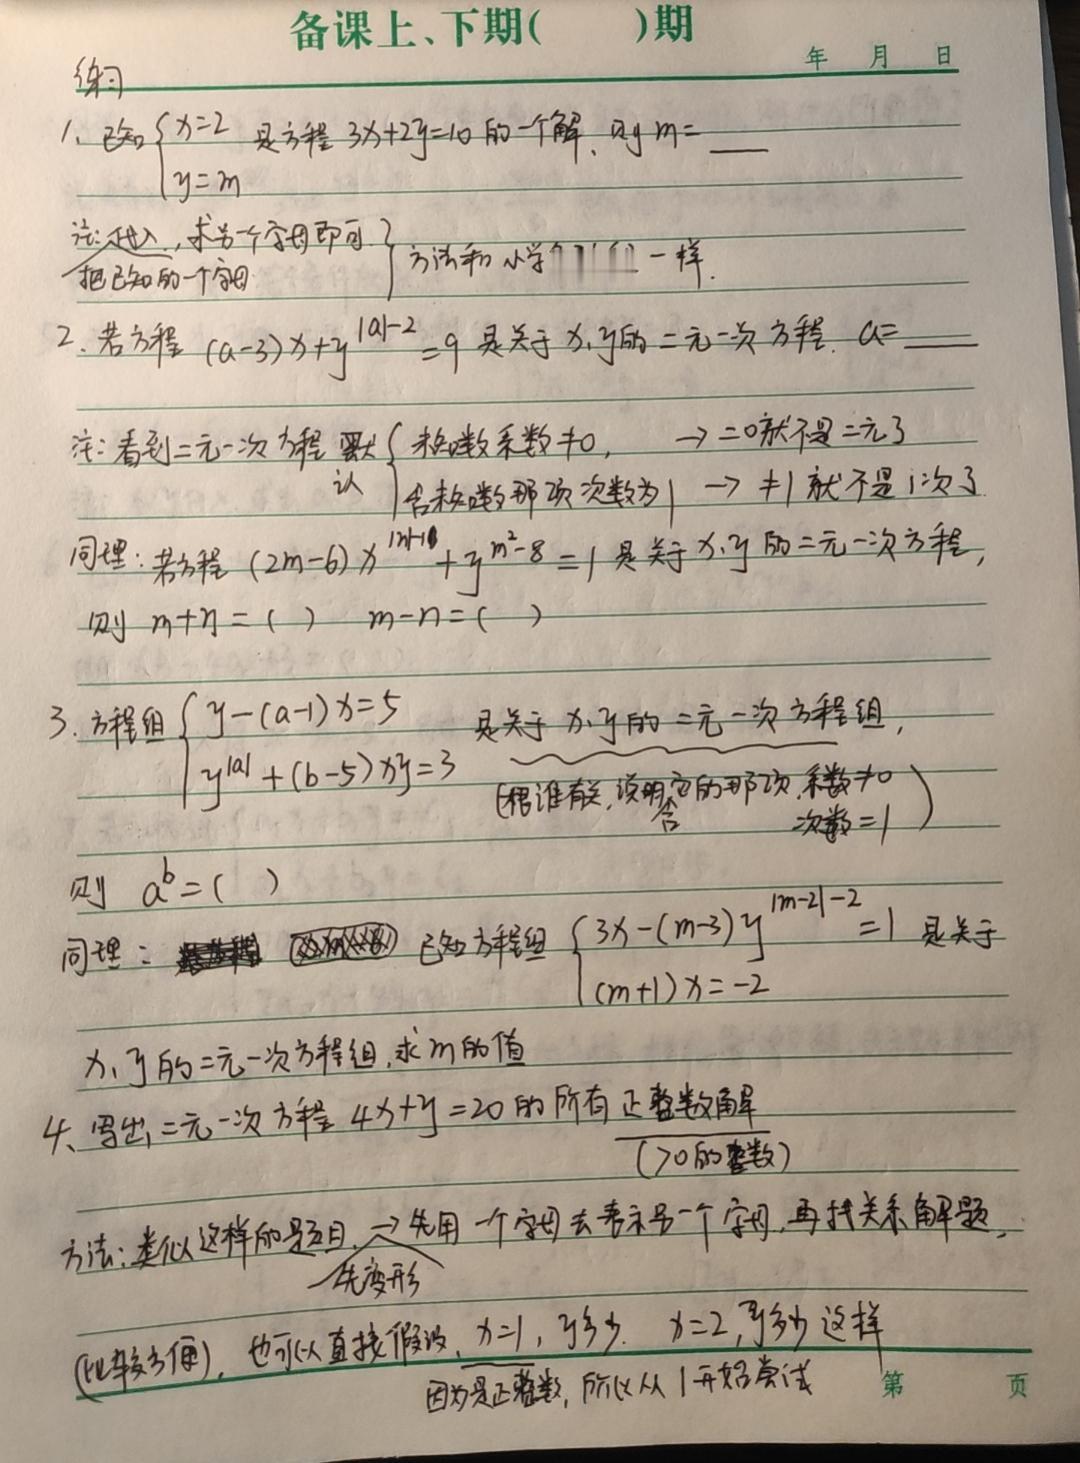 备课上、下期(　　)期
年 月 日
练习
1、已知{x=2 是方程 3x+2y=10 的一个解、则 m=___
y=m
注:代入,求另一个字母即可 } 方法和小学 一样.
把已知的一个字母
2、若方程 (a-3)x+y^{|a|-2}=9 是关于 x、y的二元一次方程. a=____
注:看到二元一次方程 默认 { 未知数系数≠0, → =0就不是二元了
含未知数那项次数为1 → ≠1 就不是1次了
同理:若方程 (2m-6)x + y^{m²-8} = 1 是关于 x、y 的二元一次方程,
则 m+n=( ) m-n=( )
3、方程组 { y-(a-1)x=5 是关于 x、y的二元一次方程组,
y^{|a|}+(b-5)xy=3 (跟谁有关,说明含它的那项,系数≠0
次数=1)
则 a^b=( )
同理: 已知方程组 { 3x-(m-3)y^{|m-2|-2}=1 是关于
(m+1)x=-2
x、y的二元一次方程组,求m的值
4、写出二元一次方程 4x+y=20 的所有正整数解
(>0的整数)
方法:类似这样的题目,→先用一个字母去表示另一个字母,再找关系解题,
先变形
(比较方便),也可以直接假设,x=1,y多少. x=2,y多少 这样
因为是正整数,所以从1开始尝试
第 页